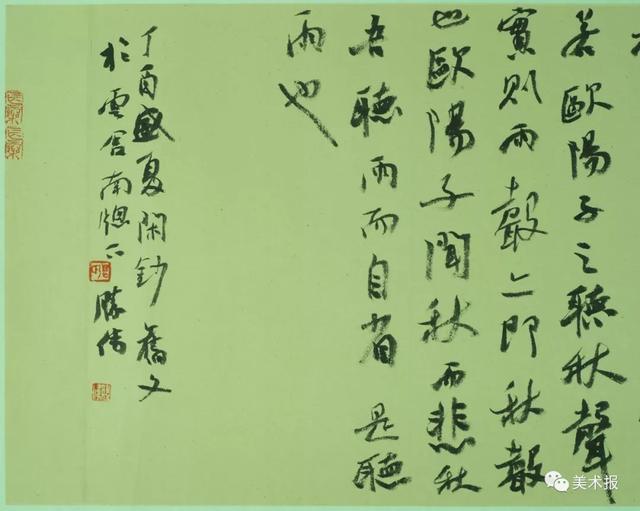 若歐陽子之聽秋聲
實則雨聲亦即秋聲
也歐陽子聞秋而悲秋
吾聽雨而自省是聽
雨也
丁酉盛夏閑鈔舊文
於雲居南窗下
勝偉
美术报